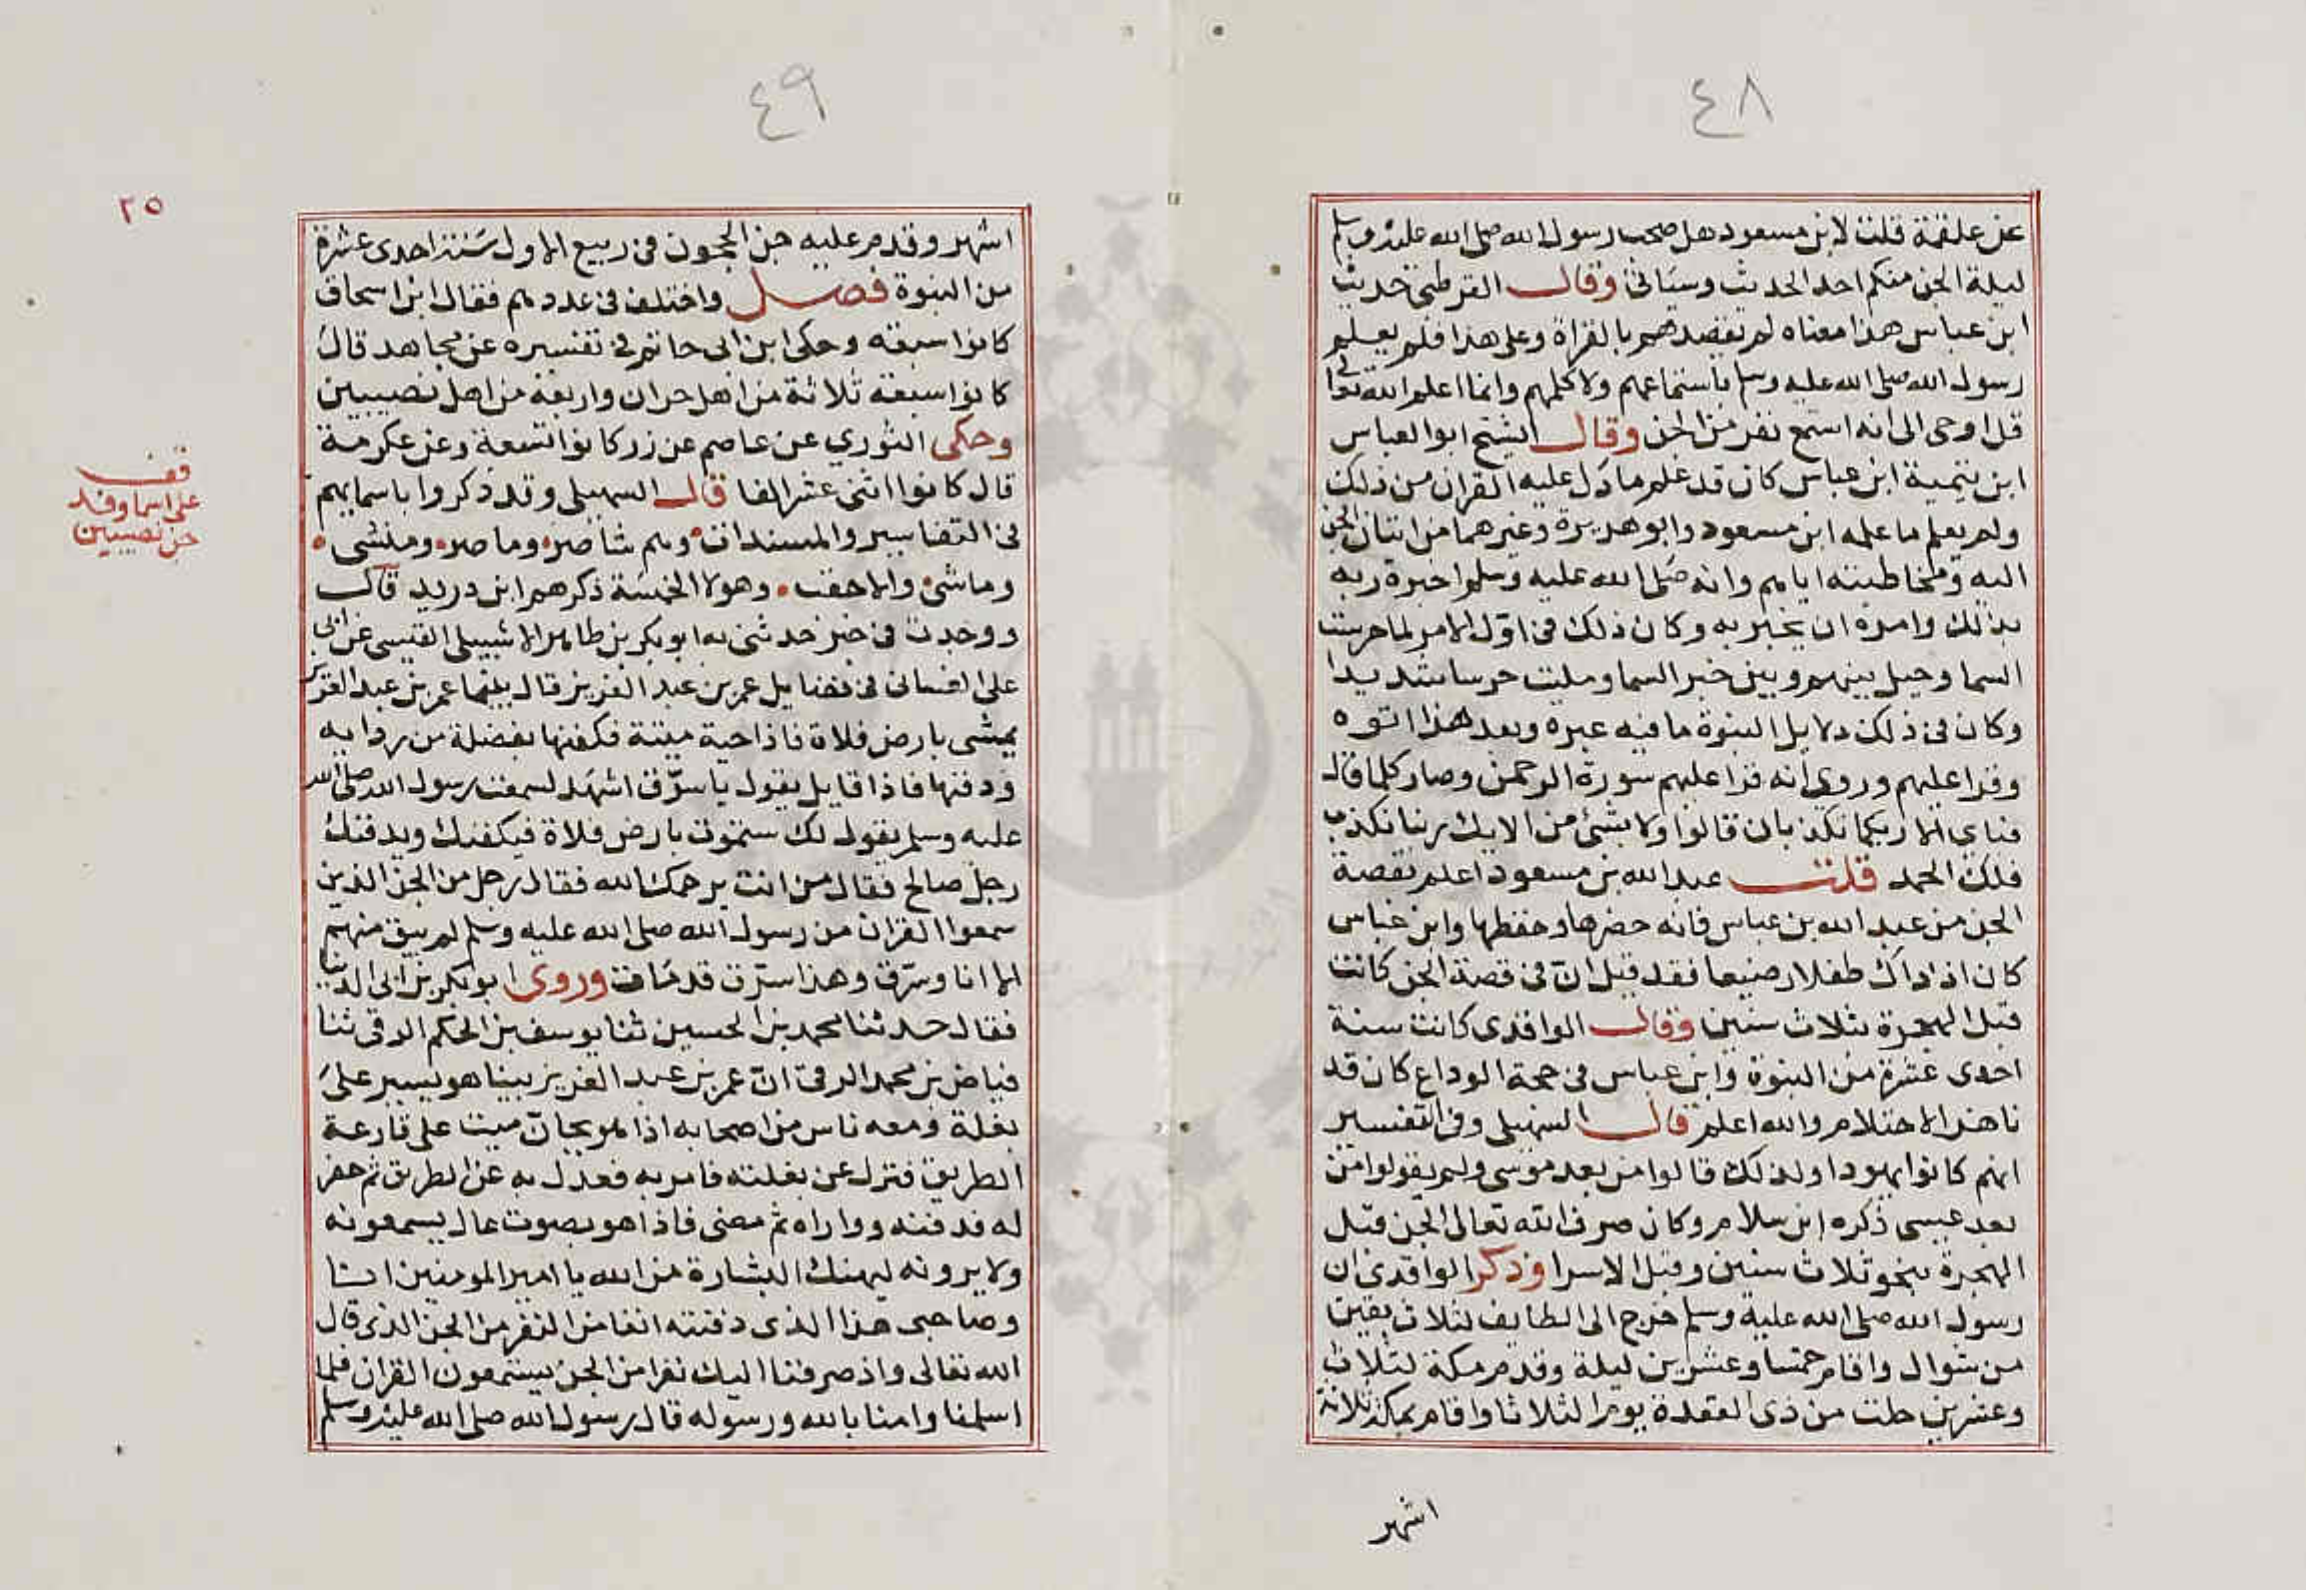 ٤٨
عن علقمة قلت لابن مسعود هل صحب رسول الله صلى الله عليه وسلم
ليلة الجن منكم احد الحديث وسياتى وقال القرطبى حديث
ابن عباس هذا معناه لم يقصدهم بالقراة وعلى هذا فلم يعلم
رسول الله صلى الله عليه وسلم باستماعهم ولا كلمهم وانما اعلم الله تعالى
قل اوحى الى انه استمع نفر من الجن وقال الشيخ ابو العباس
ابن تيمية ابن عباس كان قد علم ما دل عليه القران من ذلك
ولم يعلم ما علمه ابن مسعود وابو هريرة وغيرهما من اتيان الجن
اليه ومخاطبته اياهم وانه صلى الله عليه وسلم اخبره ربه
بذلك وامره ان يخبر به وكان ذلك فى اول الامر لما حرست
السما وحيل بينهم وبين خبر السما وملت حرسا شديدا
وكان فى ذلك دلايل النبوة ما فيه عبره وبعد هذا اتوه
وقرا عليهم وروى انه قرا عليهم سورة الرحمن وصار كلما قال
فباى الا ربكما تكذبان قالوا ولا بشئ من الايك ربنا نكذب
فلك الحمد قلت عبد الله بن مسعود اعلم بقصة
الجن من عبد الله بن عباس فانه حضرها وحفظها وابن عباس
كان اذ ذاك طفلا رضيعا فقد قيل ان فى قصة الجن كانت
قبل الهجرة بثلاث سنين وقال الواقدى كانت سنة
احدى عشرة من النبوة وابن عباس فى حجة الوداع كان قد
ناهز الاحتلام والله اعلم قال السهيلى وفى التفسير
انهم كانوا يهودا ولذلك قالوا من بعد موسى ولم يقولوا من
بعد عيسى ذكره ابن سلام وكان صرف الله تعالى الجن قبل
الهجرة بنحو ثلاث سنين وقبل الاسرا وذكر الواقدى ان
رسول الله صلى الله عليه وسلم خرج الى الطايف لثلاث بقين
من شوال واقام خمسا وعشرين ليلة وقدم مكة لثلاث
وعشرين خلت من ذى القعدة يوم الثلاثا واقام بمكة ثلاثة
اشهر
٤٩
٢٥
اشهر وقدم عليه جن الحجون فى ربيع الاول سنة احدى عشرة
من النبوة فصل واختلف فى عددهم فقال ابن اسحاق
كانوا سبعه وحكى ابن ابى حاتم فى تفسيره عن مجاهد قال
كانوا سبعه ثلاثة من اهل حران واربعة من اهل نصيبين
وحكى الثوري عن عاصم عن زر كانوا تسعة وعن عكرمة
قال كانوا اثنى عشر الفا قال السهيلى وقد ذكروا باسمايهم
فى التفاسير والمسندات وهم شاصر وماصر ومنشى
وماشى والاحقب وهولا الخمسة ذكرهم ابن دريد قال
ووجدت فى خبر حدثنى به ابو بكر بن طاهر الاشبيلى القيسى عن ابى
على الغسانى فى فضايل عمر بن عبد العزيز قال بينما عمر بن عبد العزيز
يمشى بارض فلاة فاذا حية ميتة فكفنها بفضلة من ردايه
ودفنها فاذا قايل يقول ياسرّق اشهد لسمعت رسول الله صلى الله
عليه وسلم يقول لك ستموت بارض فلاة فيكفنك ويدفنك
رجل صالح فقال من انت يرحمك الله فقال رجل من الجن الذين
سمعوا القران من رسول الله صلى الله عليه وسلم لم يبق منهم
الا انا وسرّق وهذا سرّق قد مات وروى ابو بكر بن ابى الدنيا
فقال حدثنا محمد بن الحسين ثنا يوسف بن الحكم الرقى ثنا
فياض بن محمد الرقى ان عمر بن عبد العزيز بينا هو يسير على
بغلة ومعه ناس من اصحابه اذا هو بجان ميت على قارعة
الطريق فنزل عن بغلته فامر به فعدل به عن الطريق ثم حفر
له فدفنه وواراه ثم مضى فاذا هو بصوت عال يسمعونه
ولا يرونه ليهنك البشارة من الله يا امير المومنين انا
وصاحبى هذا الذى دفنته انفا من النفر من الجن الذى قال
الله تعالى واذ صرفنا اليك نفرا من الجن يستمعون القران فلما
اسلمنا وامنا بالله ورسوله قال رسول الله صلى الله عليه وسلم
قف
على اسما وفد
جن نصيبين